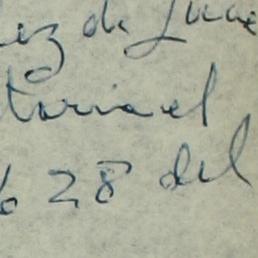 ez de Luce
toria el
o 28 del